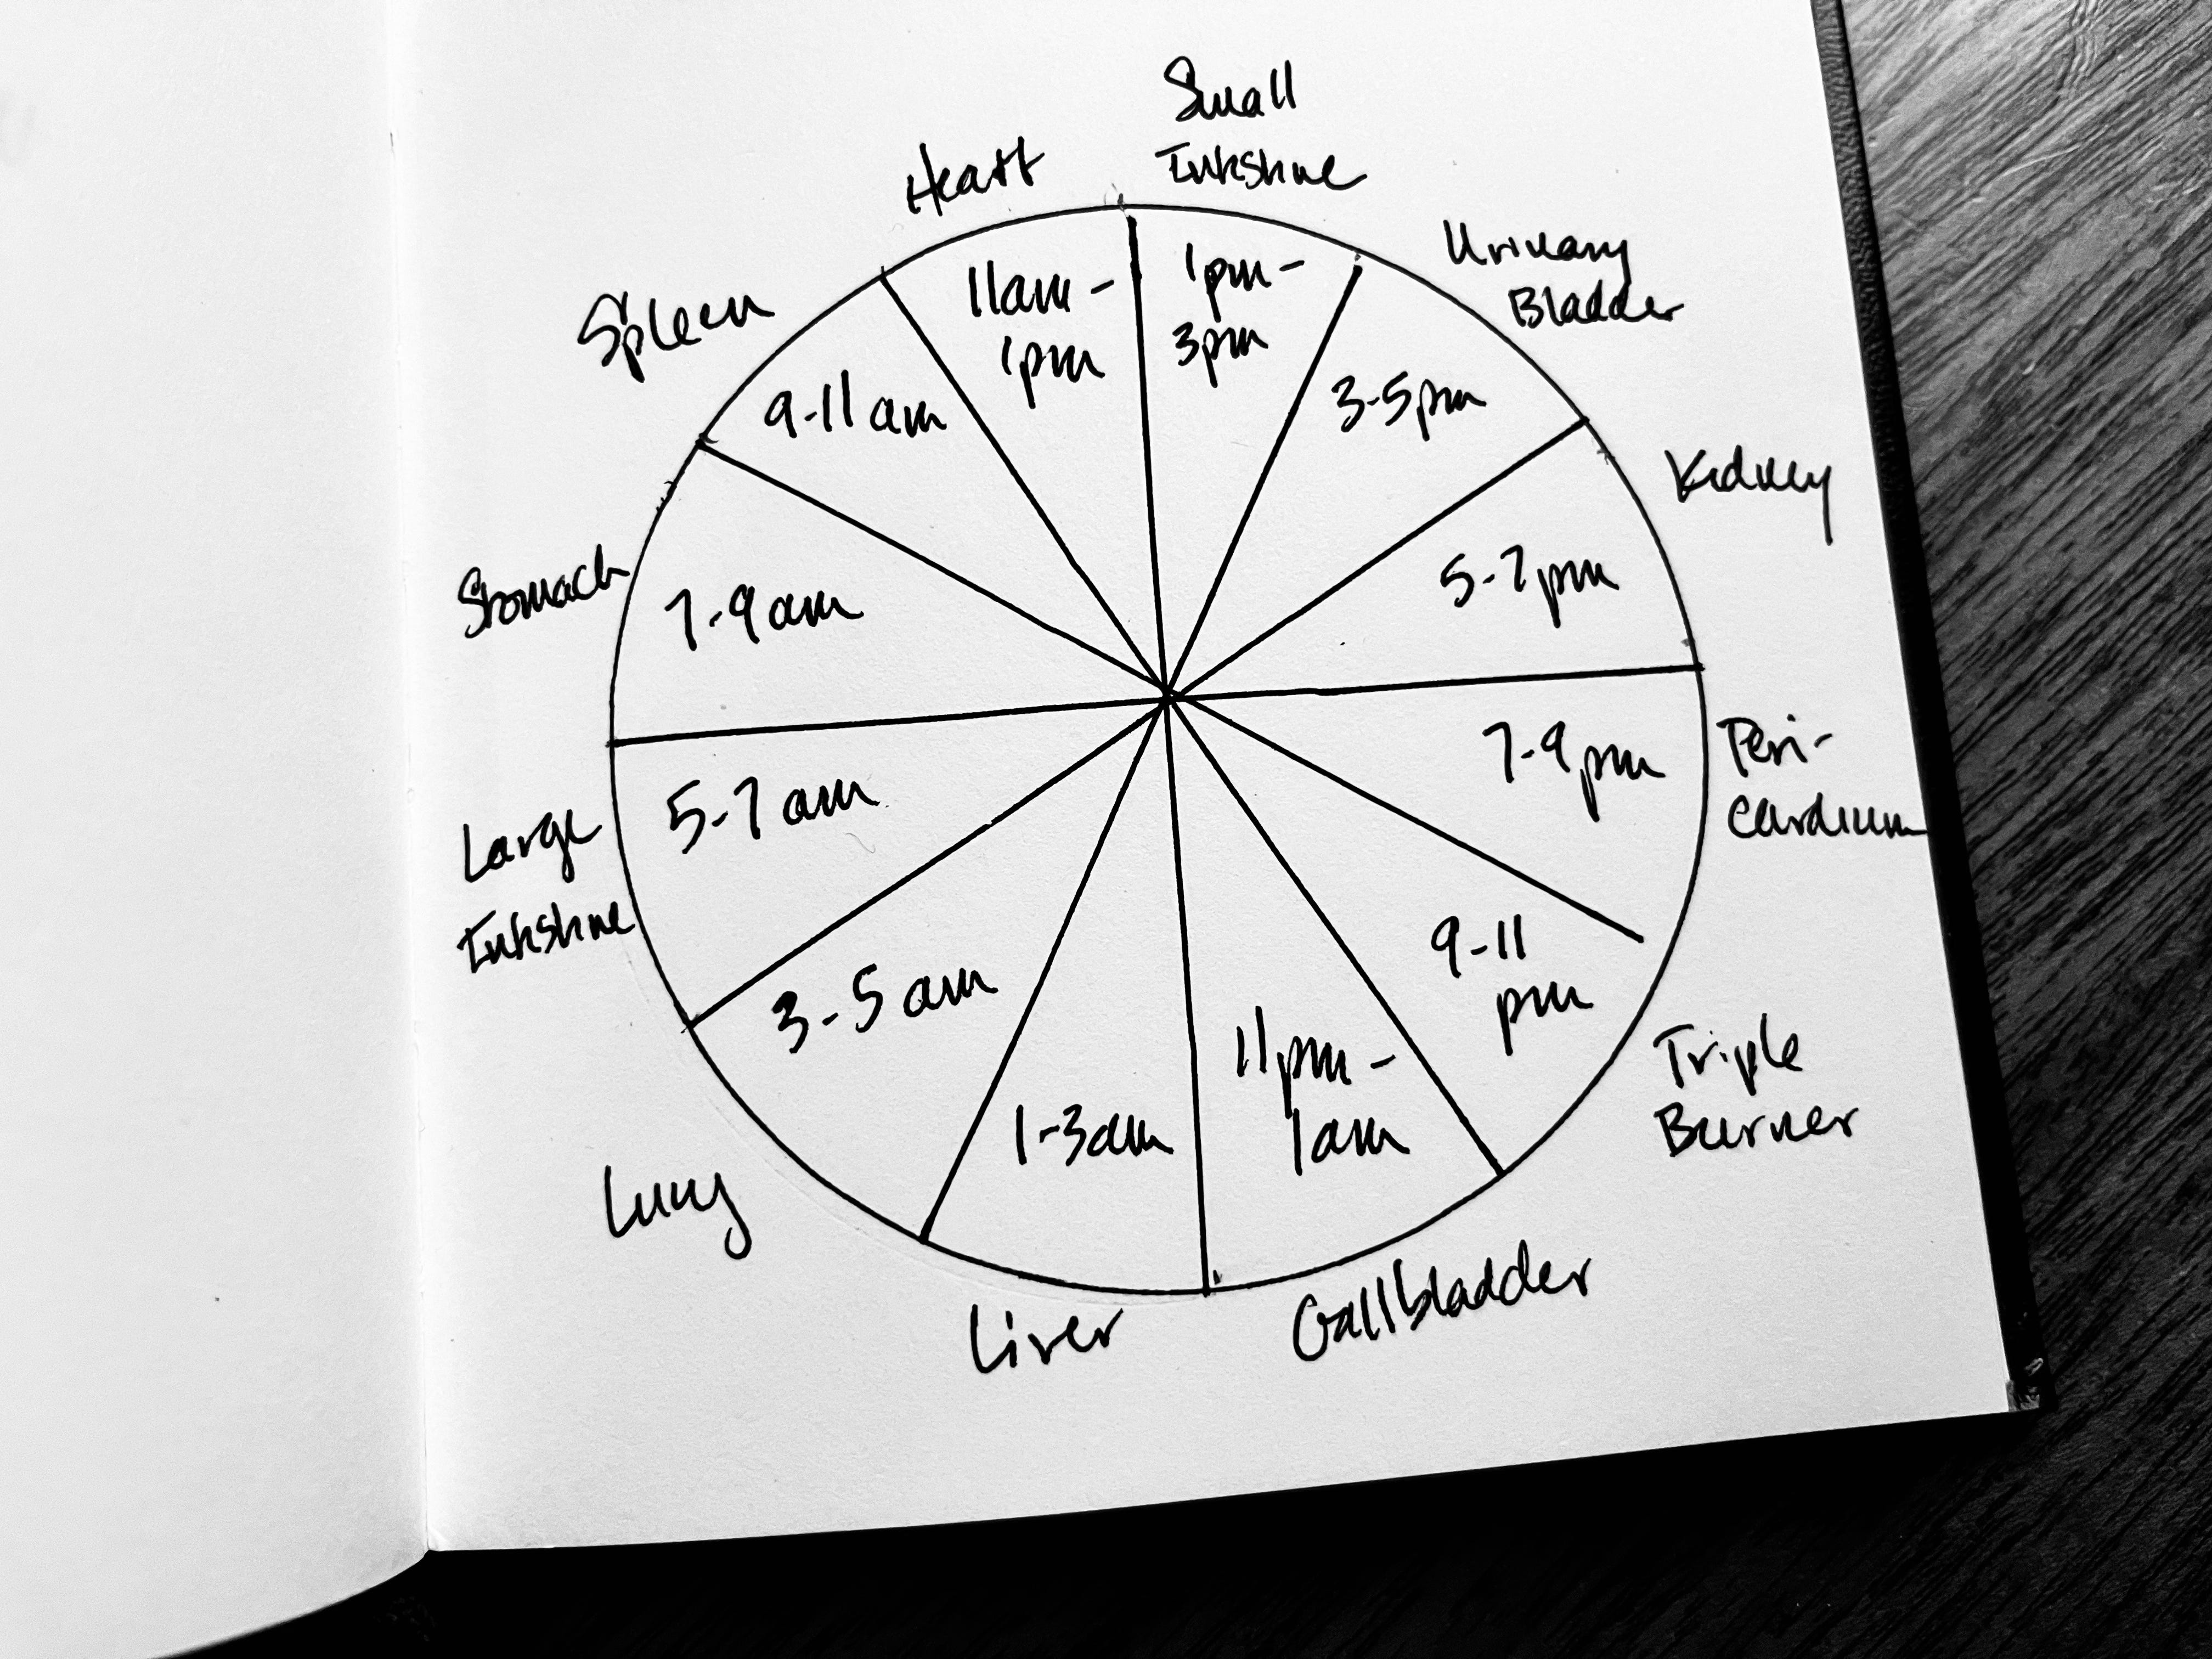 Small
Intestine
1pm-
3pm
Urinary
Bladder
3-5pm
Kidney
5-7pm
Peri-
cardium
7-9pm
Triple
Burner
9-11
pm
Gallbladder
11pm-
1am
Liver
1-3am
Lung
3-5am
Large
Intestine
5-7am
Stomach
7-9am
Spleen
9-11am
Heart
11am-
1pm